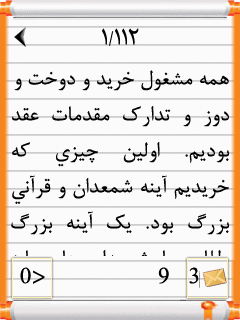 ۱/۱۱۲
همه مشغول خريد و دوخت و
دوز و تدارک مقدمات عقد
بوديم. اولين چيزي که
خريديم آينه شمعدان و قرآني
بزرگ بود. يک آينه بزرگ
0> 9 3